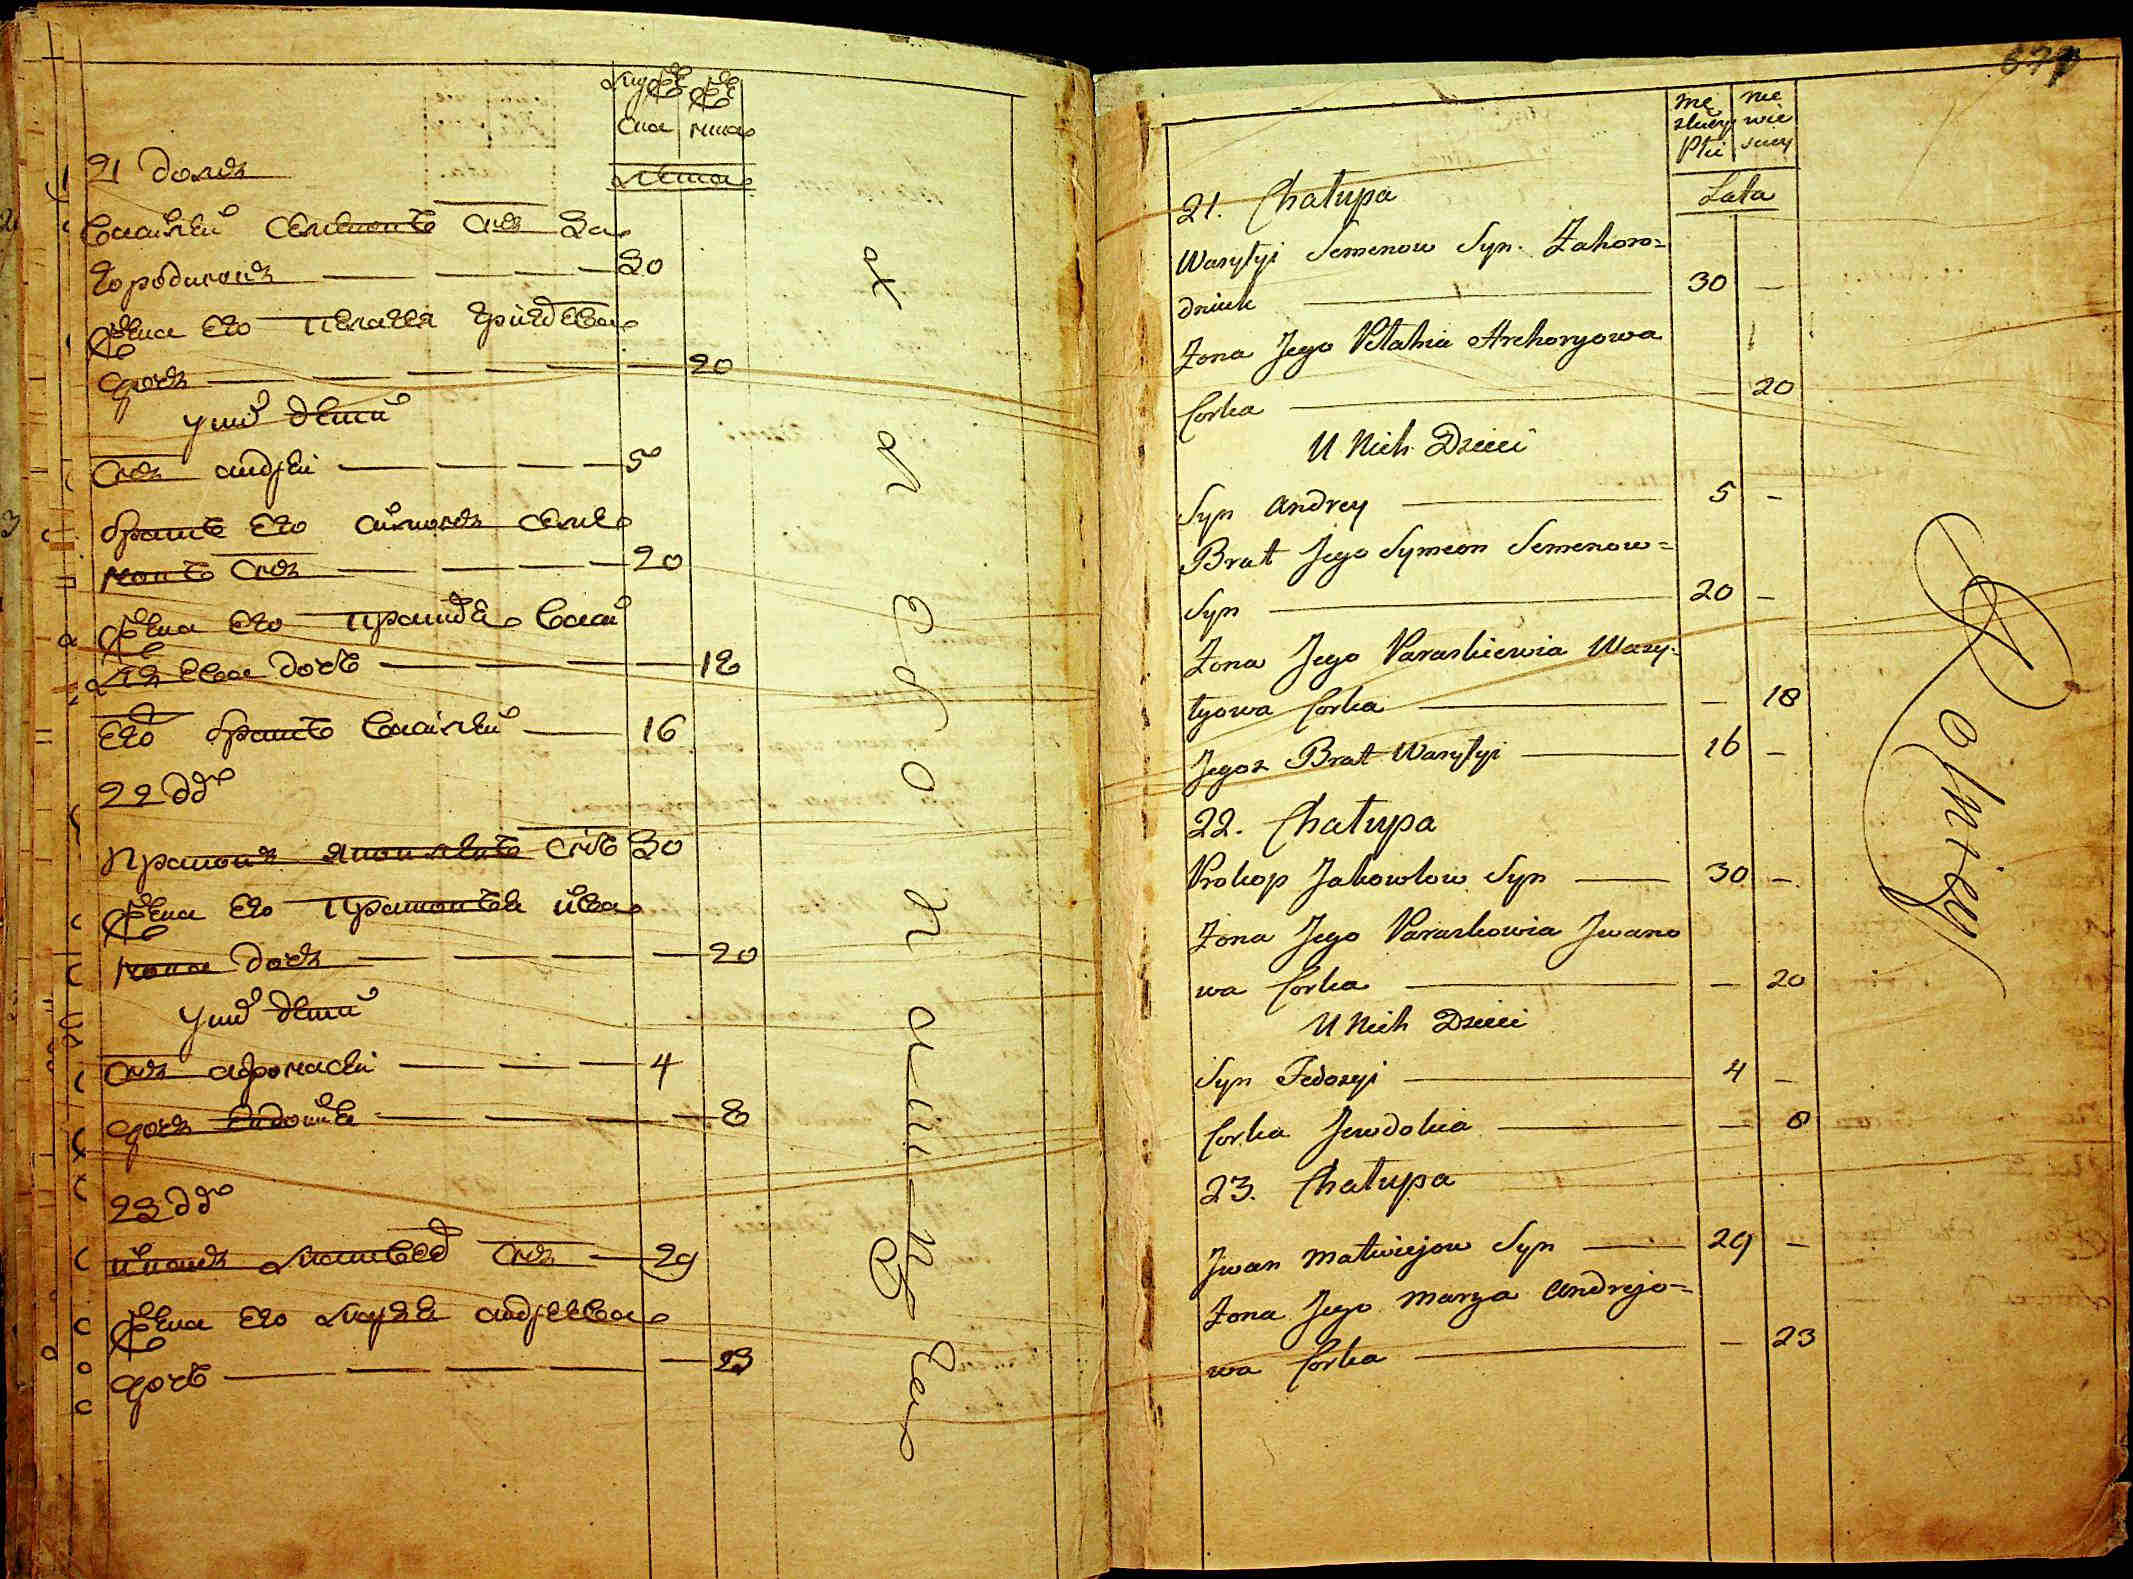 21 домъ
Василий Семеновъ Снъ За
городнюкъ 30
Жена Его Пелагея Григорьева
дочь 20
у них дети
Снъ андрей 5
братъ Его симонъ Семе
новъ Снъ 20
Жена Его параске Васи
льева дочь 18
Его братъ Василий 16
22 дом
Жена Его
нова дочь 20
у них дети
Снъ 4
дочь 8
23 дом
иванъ матвеев Снъ 29
Жена Его маря андреева
дочь 23
677
Mę zkiey Płci
nie wie sciey
Lata
21. Chałupa
Wasylyi Semenow Syn Zahoro=
dniuk 30 –
Zona Jego Pelahia Hrehoryowa
Corka – 20
U Nich Dzieci
Syn Andrey 5 –
Brat Jego Symeon Semenow=
Syn 20 –
Zona Jego Paraskiewia Wasy=
lyowa Corka – 18
Jegoz Brat Wasylyi 16 –
22. Chałupa
Prokop Jakowlow Syn 30 –
Zona Jego Paraskowia Jwano
wa Corka – 20
U Nich Dzieci
Syn Fedosyi 4 –
Corka Jewdokia – 8
23. Chałupa
Jwan Matwiejow Syn 29 –
Zona Jego Marya Andrejo=
wa Corka – 23